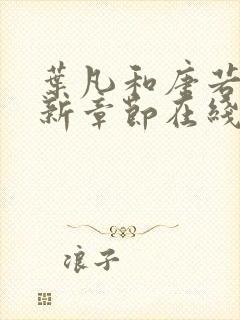 葉凡和唐若
新章節在綫
浪子